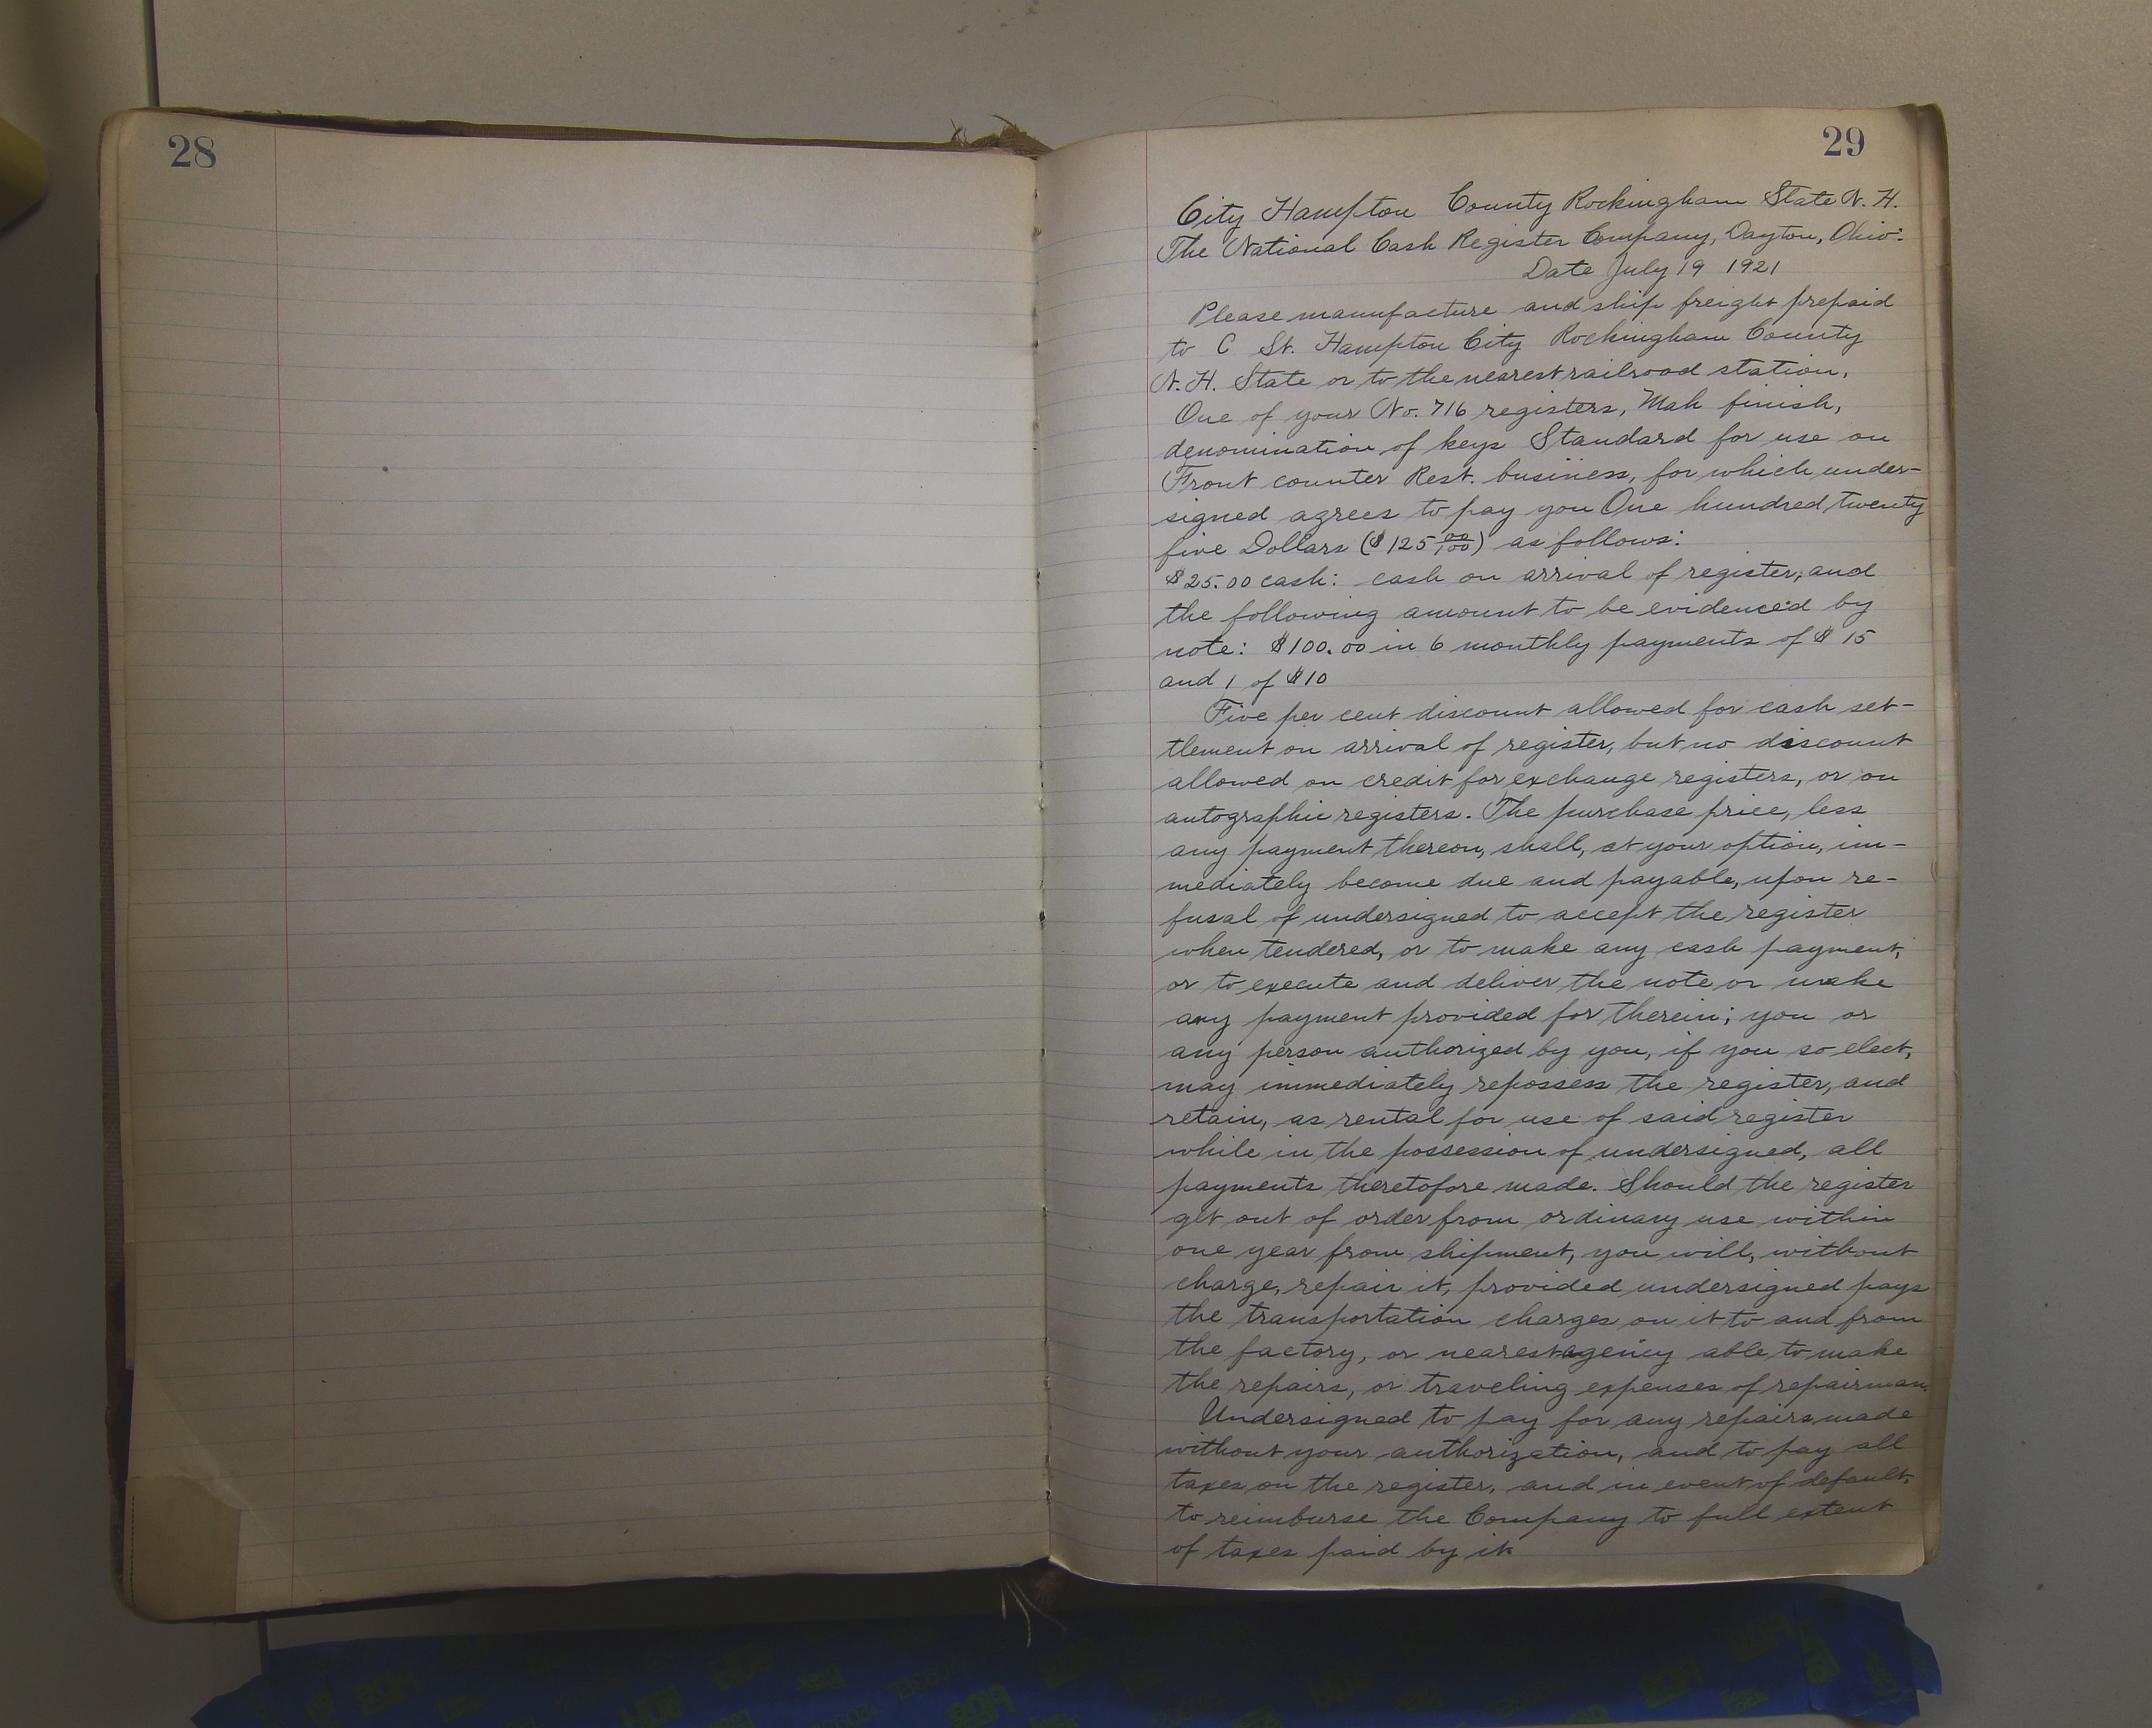 28
29
City Hampton County Rockingham State N. H.
The National Cash Register Company, Dayton, Ohio:
Date July 19 1921
Please manufacture and ship freight prepaid
to C St. Hampton City Rockingham County
N. H. State or to the nearest railroad station,
One of your No. 716 registers, Mah finish,
denomination of keys Standard for use on
Front counter Rest. business, for which under-
signed agrees to pay you One hundred twenty
five Dollars ($125 00/100) as follows:
$25.00 cash: cash on arrival of register; and
the following amount to be evidenced by
note: $100.00 in 6 monthly payments of $15
and 1 of $10
Five per cent discount allowed for cash set-
tlement on arrival of register, but no discount
allowed on credit for exchange registers, or on
autographic registers. The purchase price, less
any payment thereon, shall, at your option, im-
mediately become due and payable, upon re-
fusal of undersigned to accept the register
when tendered, or to make any cash payment,
or to execute and deliver the note or make
any payment provided for therein; you or
any person authorized by you, if you so elect,
may immediately repossess the register, and
retain, as rental for use of said register
while in the possession of undersigned, all
payments theretofore made. Should the register
get out of order from ordinary use within
one year from shipment, you will, without
charge, repair it, provided undersigned pays
the transportation charges on it to and from
the factory, or nearest agency able to make
the repairs, or traveling expenses of repairman.
Undersigned to pay for any repairs made
without your authorization, and to pay all
taxes on the register, and in event of default,
to reimburse the Company to full extent
of taxes paid by it